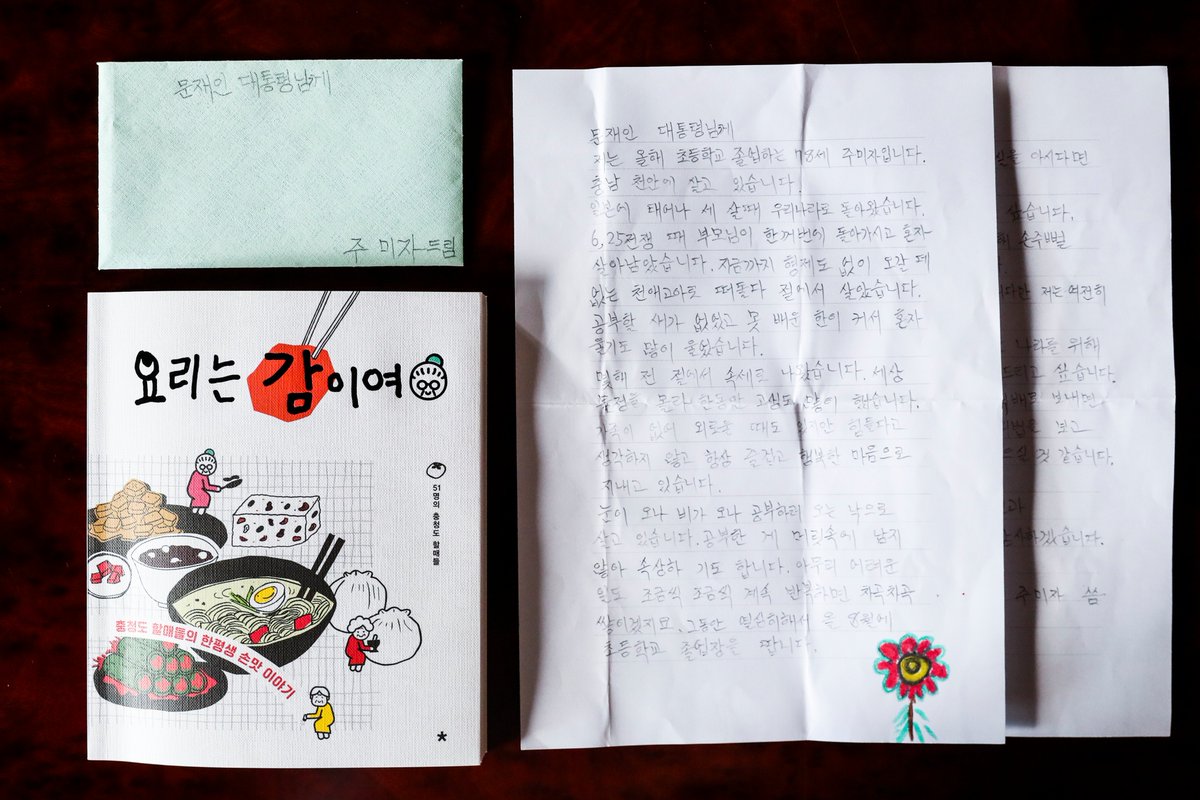 문재인 대통령님께
주 미자 드림
요리는 감이여
51명의 충청도 할매들
충청도 할매들의 한평생 손맛 이야기
*
문재인 대통령님께
저는 올해 초등학교 졸업하는 78세 주미자입니다.
충남 천안에 살고 있습니다.
일본에 태어나 세 살때 우리나라로 돌아왔습니다.
6,25전쟁 때 부모님이 한꺼번에 돌아가시고 혼자
살아남았습니다. 지금까지 형제도 없이 오갈 데
없는 천애고아로 떠돌다 절에서 살았습니다.
공부할 새가 없었고 못 배운 한이 커서 혼자
울기도 많이 울었습니다.
몇해 전 절에서 속세로 나왔습니다. 세상
물정을 몰라 한동안 고생도 많이 했습니다.
가족이 없어 외로울 때도 있지만 힘들다고
생각하지 않고 항상 즐겁고 행복한 마음으로
지내고 있습니다.
눈이 오나 비가 오나 공부하러 오는 낙으로
살고 있습니다. 공부한 게 머릿속에 남지
않아 속상하 기도 합니다. 아무리 어려운
일도 조금씩 조금씩 계속 반복하면 차곡차곡
쌓이겠지요. 그동안 열심히해서 올 8월에
초등학교 졸업장을 땁니다.
아시다면
싶습니다.
손주뻘
저는 여전히
나라를 위해
드리고 싶습니다.
보내면
보고
것 같습니다.
주미자 씀